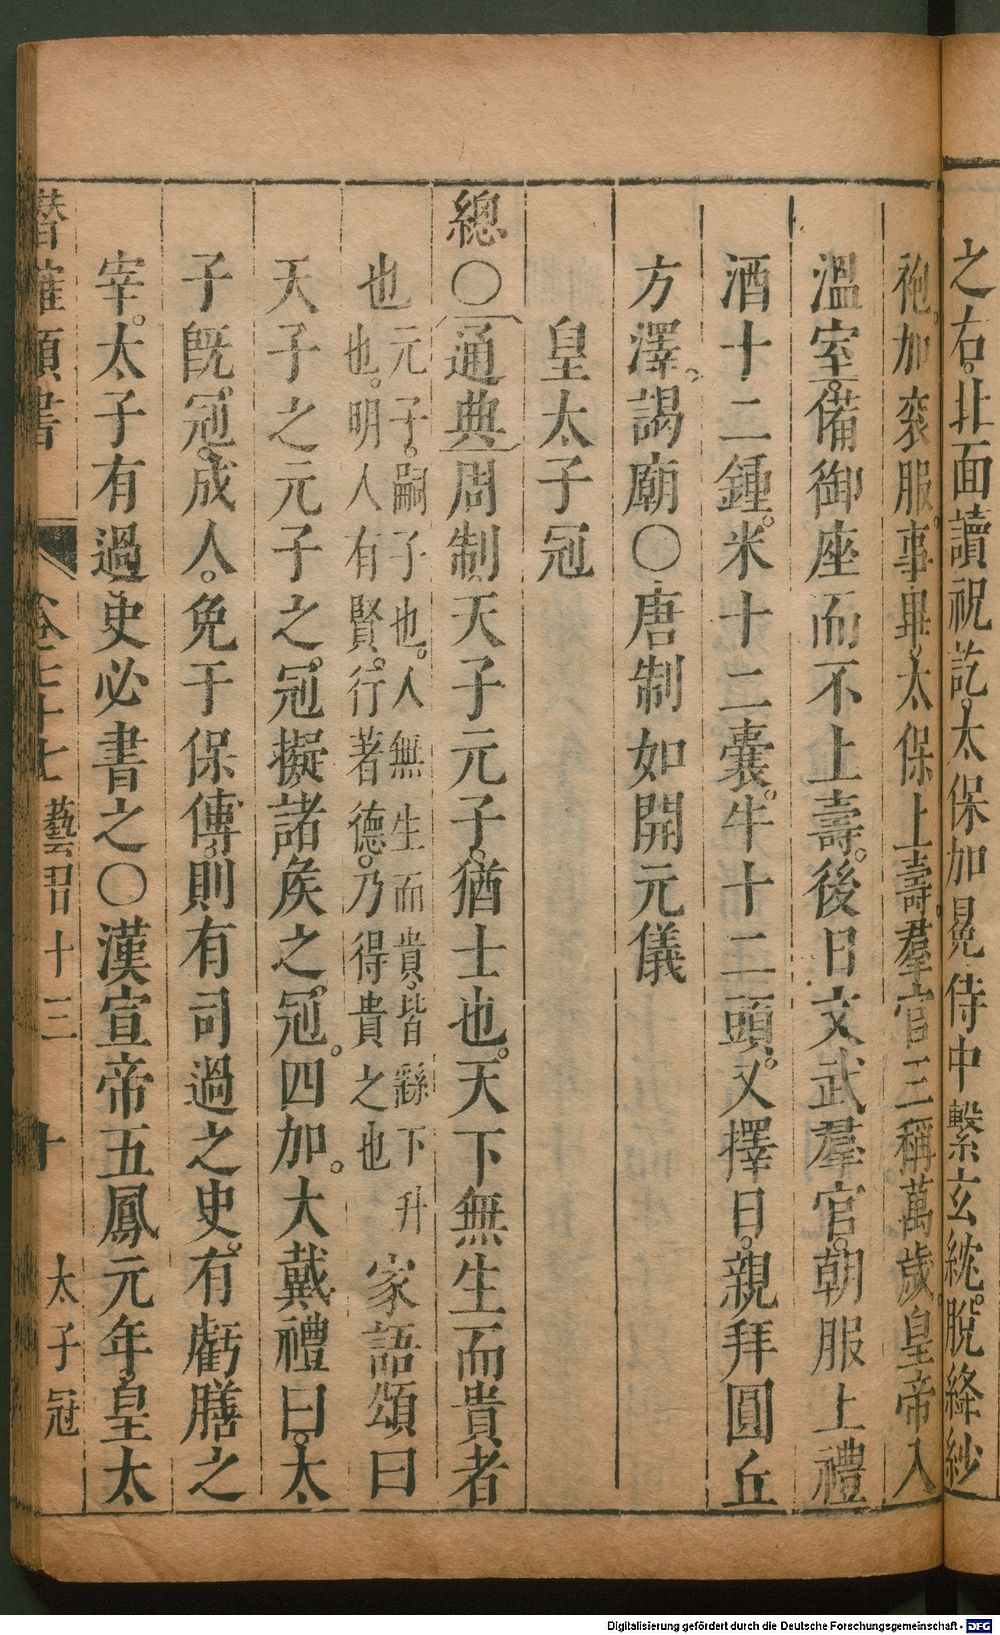 之右北面讀祝訖太保加冕侍中繫玄紞脫絳紗
袍加衮服事畢太保上壽羣官三稱萬歲皇帝入
溫室備御座而不上壽後日文武羣官朝服上禮
酒十二鍾米十二囊牛十二頭又擇日親拜圓丘
方澤謁廟○唐制如開元儀
皇太子冠
總○通典周制天子元子猶士也天下無生而貴者
也元子嗣子也人無生而貴皆繇下升
也明人有賢行著德乃得貴之也家語頌曰
天子之元子之冠擬諸侯之冠四加大戴禮曰太
子旣冠成人免于保傅則有司過之史有虧膳之
宰太子有過史必書之○漢宣帝五鳳元年皇太
潛確類書 卷七十七 藝習十三 十 太子冠
Digitalisierung gefördert durch die Deutsche Forschungsgemeinschaft - DFG